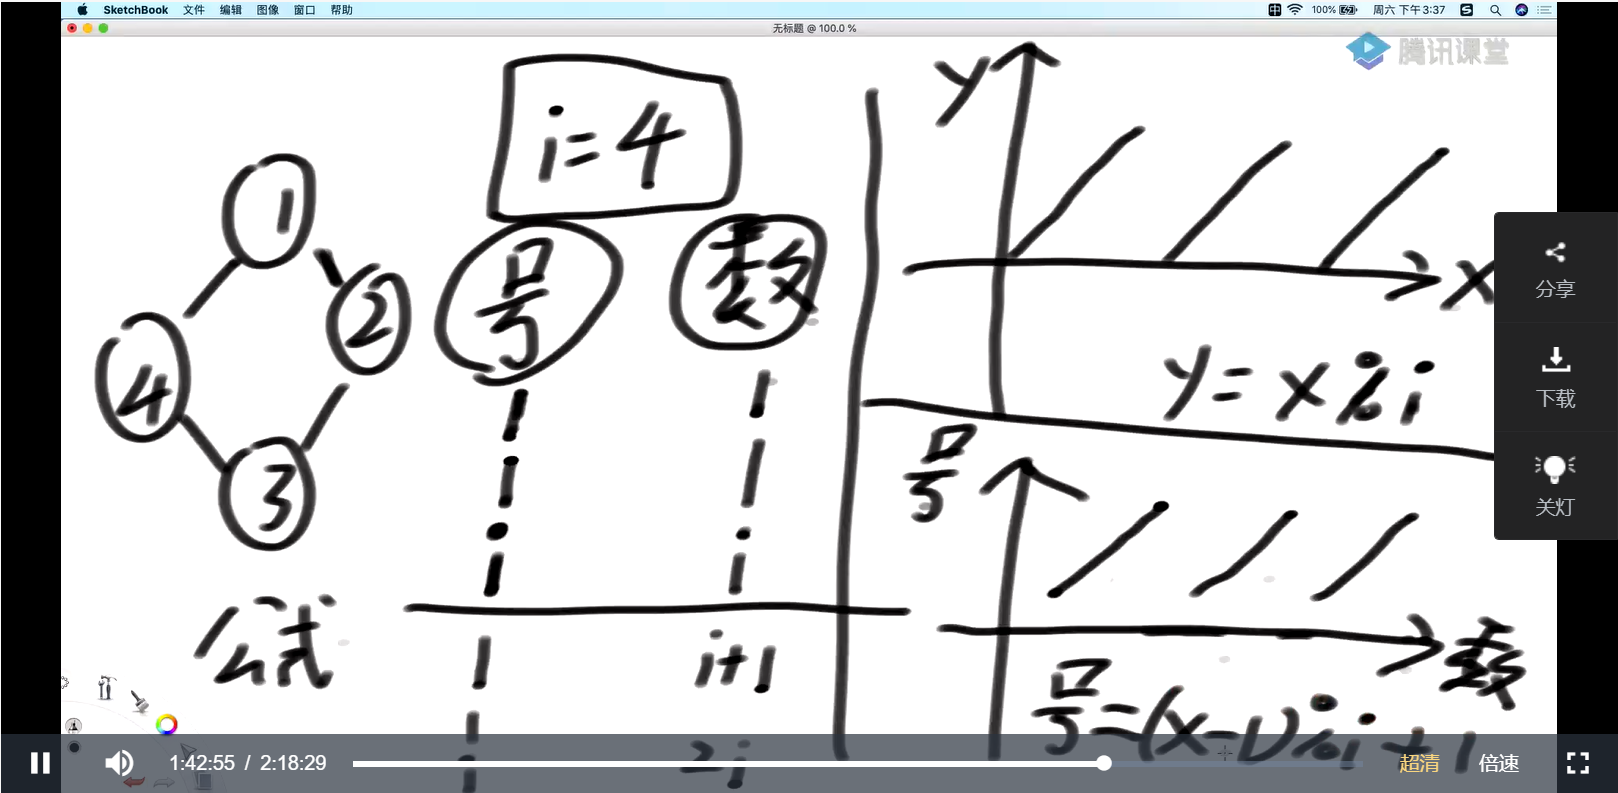 SketchBook 文件 编辑 图像 窗口 帮助
100% 周六 下午3:37
无标题 @ 100.0 %
腾讯课堂
i=4
号 数
1
2
4
3
公式
1 i+1
1 2i
y
x
y=x%i
号
数
号=(x-1)%i+1
分享
下载
关灯
1:42:55 / 2:18:29
超清 倍速